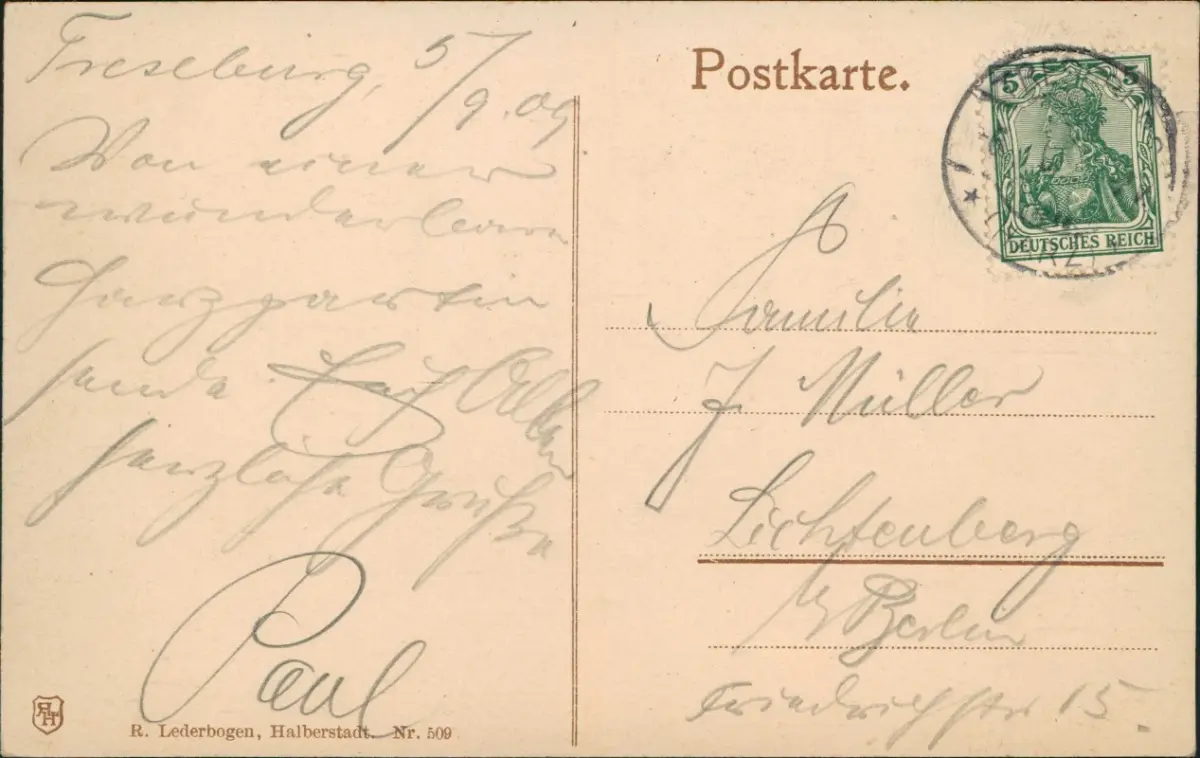 Treseburg, 5/9.09
Von einer
wunderbaren
Harzpartin
sende Euch Allen
herzliche Grüße
Paul
R. Lederbogen, Halberstadt. Nr. 509
Postkarte.
5 5
DEUTSCHES REICH
Familie
J. Müller
Lichtenberg
b/ Berlin
Friedrichstr 15.